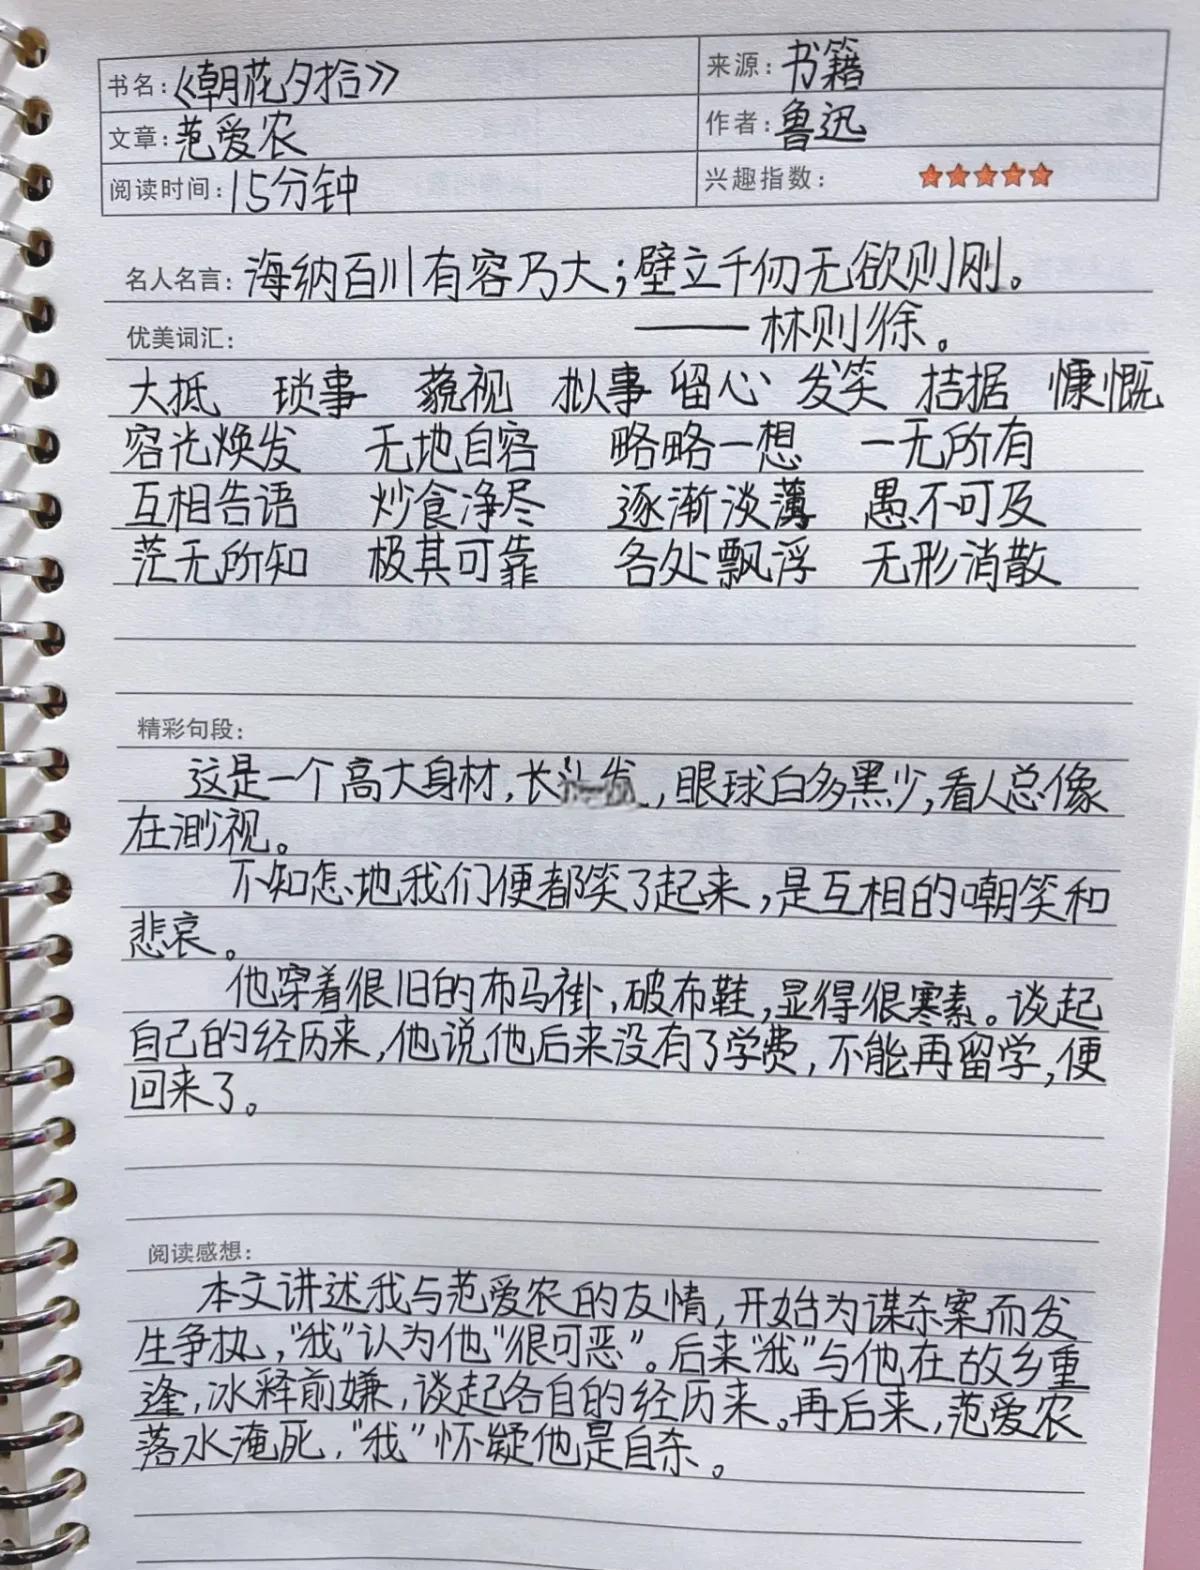 书名:《朝花夕拾》 来源:书籍
文章:范爱农 作者:鲁迅
阅读时间:15分钟 兴趣指数:
名人名言:海纳百川有容乃大;壁立千仞无欲则刚。
优美词汇: ——林则徐。
大抵 琐事 藐视 拟事 留心 发笑 拮据 慷慨
容光焕发 无地自容 略略一想 一无所有
互相告语 炒食净尽 逐渐淡薄 愚不可及
茫无所知 极其可靠 各处飘浮 无形消散
精彩句段:
这是一个高大身材,长头发,眼球白多黑少,看人总像
在渺视。
不知怎地我们便都笑了起来,是互相的嘲笑和
悲哀。
他穿着很旧的布马褂,破布鞋,显得很寒素。谈起
自己的经历来,他说他后来没有了学费,不能再留学,便
回来了。
阅读感想:
本文讲述我与范爱农的友情,开始为谋杀案而发
生争执,"我"认为他"很可恶"。后来"我"与他在故乡重
逢,冰释前嫌,谈起各自的经历来。再后来,范爱农
落水淹死,"我"怀疑他是自杀。